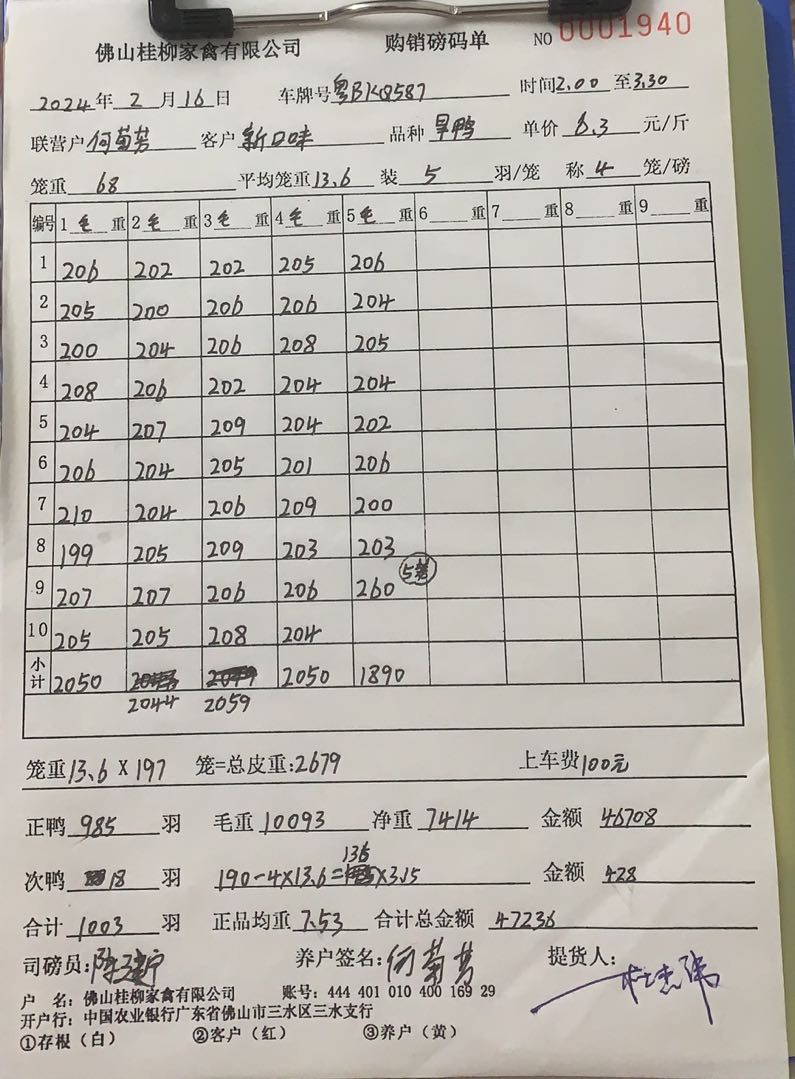 佛山桂柳家禽有限公司 购销磅码单 NO 0001940
2024年2月16日 车牌号粤BKQ587 时间2.00至3.30
联营户何菊芳 客户新口味 品种旱鸭 单价6.3元/斤
笼重68 平均笼重13.6 装5羽/笼 称4笼/磅
编号 1毛重 2毛重 3毛重 4毛重 5毛重 6重 7重 8重 9重
1 206 202 202 205 206
2 205 200 206 206 204
3 200 204 206 208 205
4 208 206 202 204 204
5 204 207 209 204 202
6 206 204 205 201 206
7 210 204 206 209 200
8 199 205 209 203 203
9 207 207 206 206 260 5笼
10 205 205 208 204
小计 2050 2050 1890
2044 2059
笼重13.6X197 笼=总皮重:2679 上车费100元
正鸭985羽 毛重10093 净重7414 金额46708
136
次鸭18羽 190-4X13.6=X3.15 金额428
合计1003羽 正品均重7.53 合计总金额47236
司磅员: 养户签名:何菊芳 提货人:
户 名:佛山桂柳家禽有限公司 账号:444 401 010 400 169 29
开户行:中国农业银行广东省佛山市三水区三水支行
①存根(白) ②客户(红) ③养户(黄)